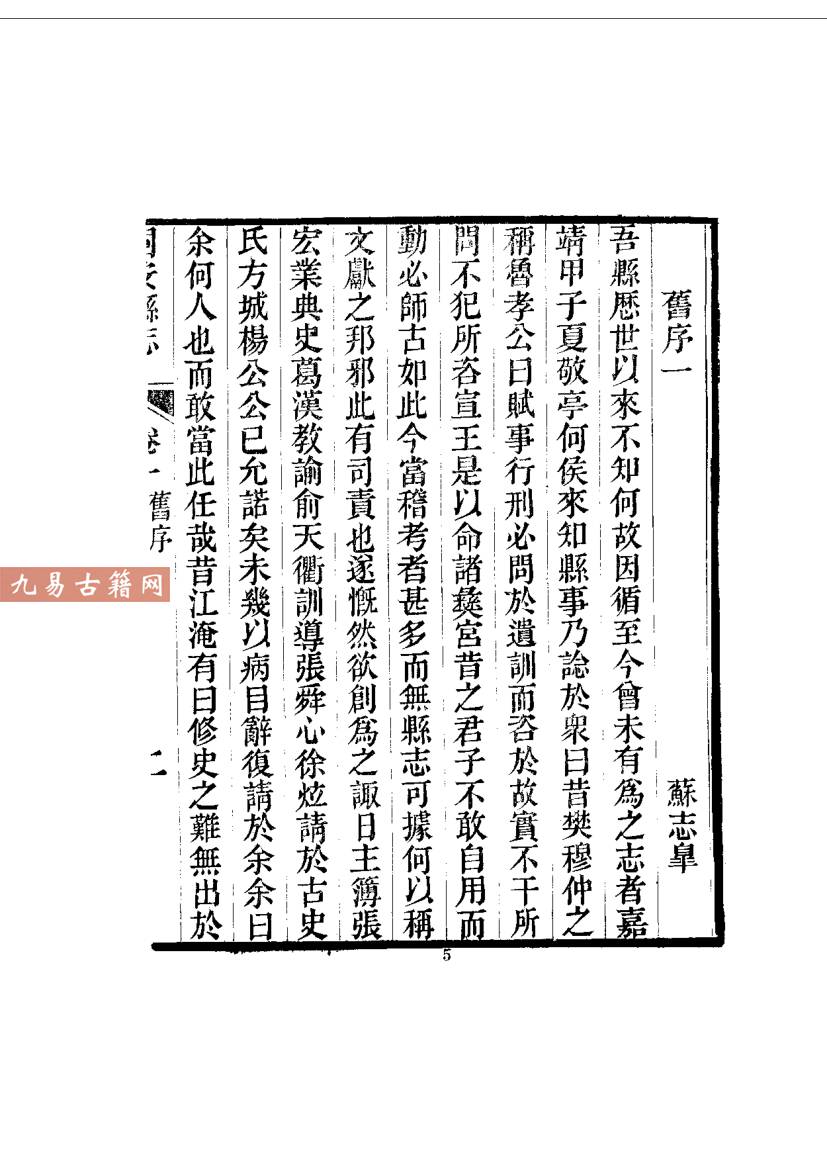 舊序一 蘇志皐
吾縣歷世以來不知何故因循至今曾未有爲之志者嘉
靖甲子夏敬亭何侯來知縣事乃諗於衆曰昔樊穆仲之
稱魯孝公曰賦事行刑必問於遺訓而咨於故實不干所
問不犯所咨宣王是以命諸彝宮昔之君子不敢自用而
動必師古如此今當稽考者甚多而無縣志可據何以稱
文獻之邦邪此有司責也遂慨然欲創爲之諏日主簿張
宏業典史葛漢教諭俞天衢訓導張舜心徐炫請於古史
氏方城楊公公已允諾矣未幾以病目辭復請於余余曰
余何人也而敢當此任哉昔江淹有曰修史之難無出於
固安縣志 卷一 舊序 二
5
九易古籍网